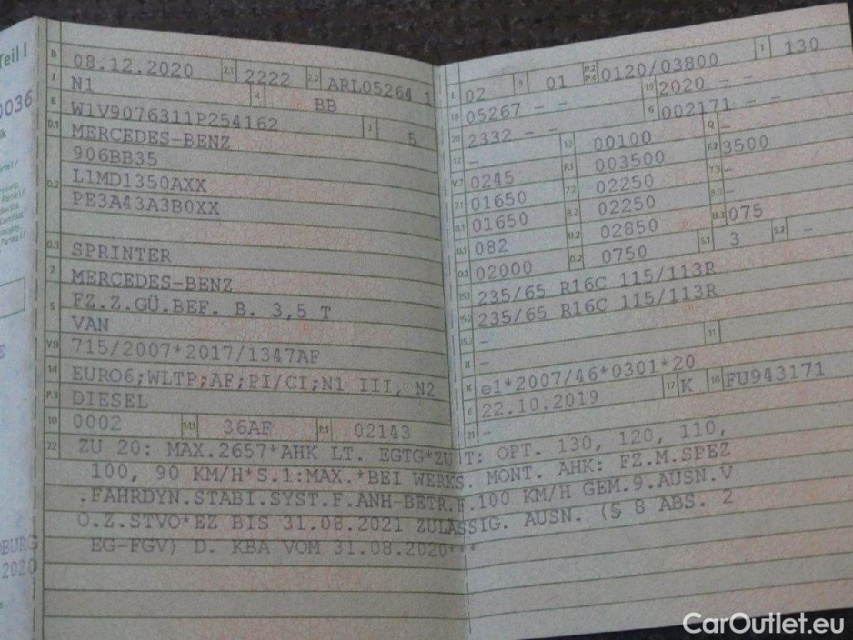 Teil I
0036
B 08.12.2020 2.1 2222 2.2 ARL05264 1
J N1 4 BB
E W1V9076311P254162 3 5
D.1 MERCEDES-BENZ
906BB35
D.2 L1MD1350AXX
PE3A43A3B0XX
D.3 SPRINTER
2 MERCEDES-BENZ
5 FZ.Z.GÜ.BEF. B. 3,5 T
VAN
V.9 715/2007*2017/1347AF
14 EURO6;WLTP;AF;PI/CI;N1 III, N2
P.3 DIESEL
10 0002 14.1 36AF P.1 02143
22 ZU 20: MAX.2657*AHK LT. EGTG*ZU T: OPT. 130, 120, 110,
100, 90 KM/H*S.1:MAX.*BEI WERKS. MONT. AHK: FZ.M.SPEZ
.FAHRDYN.STABI.SYST.F.ANH-BETR.F.100 KM/H GEM.9.AUSN.V
O.Z.STVO*EZ BIS 31.08.2021 ZULÄSSIG. AUSN. (§ 8 ABS. 2
EG-FGV) D. KBA VOM 31.08.2020***
BURG
2020
L 02 9 01 P.2 P.4 0120/03800 T 130
18 05267 – – 19 2020 – –
20 2332 – – G 002171 – –
12 – 13 00100 Q –
V.7 0245 F.1 003500 F.2 3500
7.1 01650 7.2 02250 7.3 –
8.1 01650 8.2 02250 8.3 –
U.1 082 U.2 02850 U.3 075
O.1 02000 O.2 0750 S.1 3 S.2 –
15.1 235/65 R16C 115/113R
15.2 235/65 R16C 115/113R
15.3 –
– 11
K e1*2007/46*0301*20
6 22.10.2019 17 K 16 FU943171
21 –
CarOutlet.eu